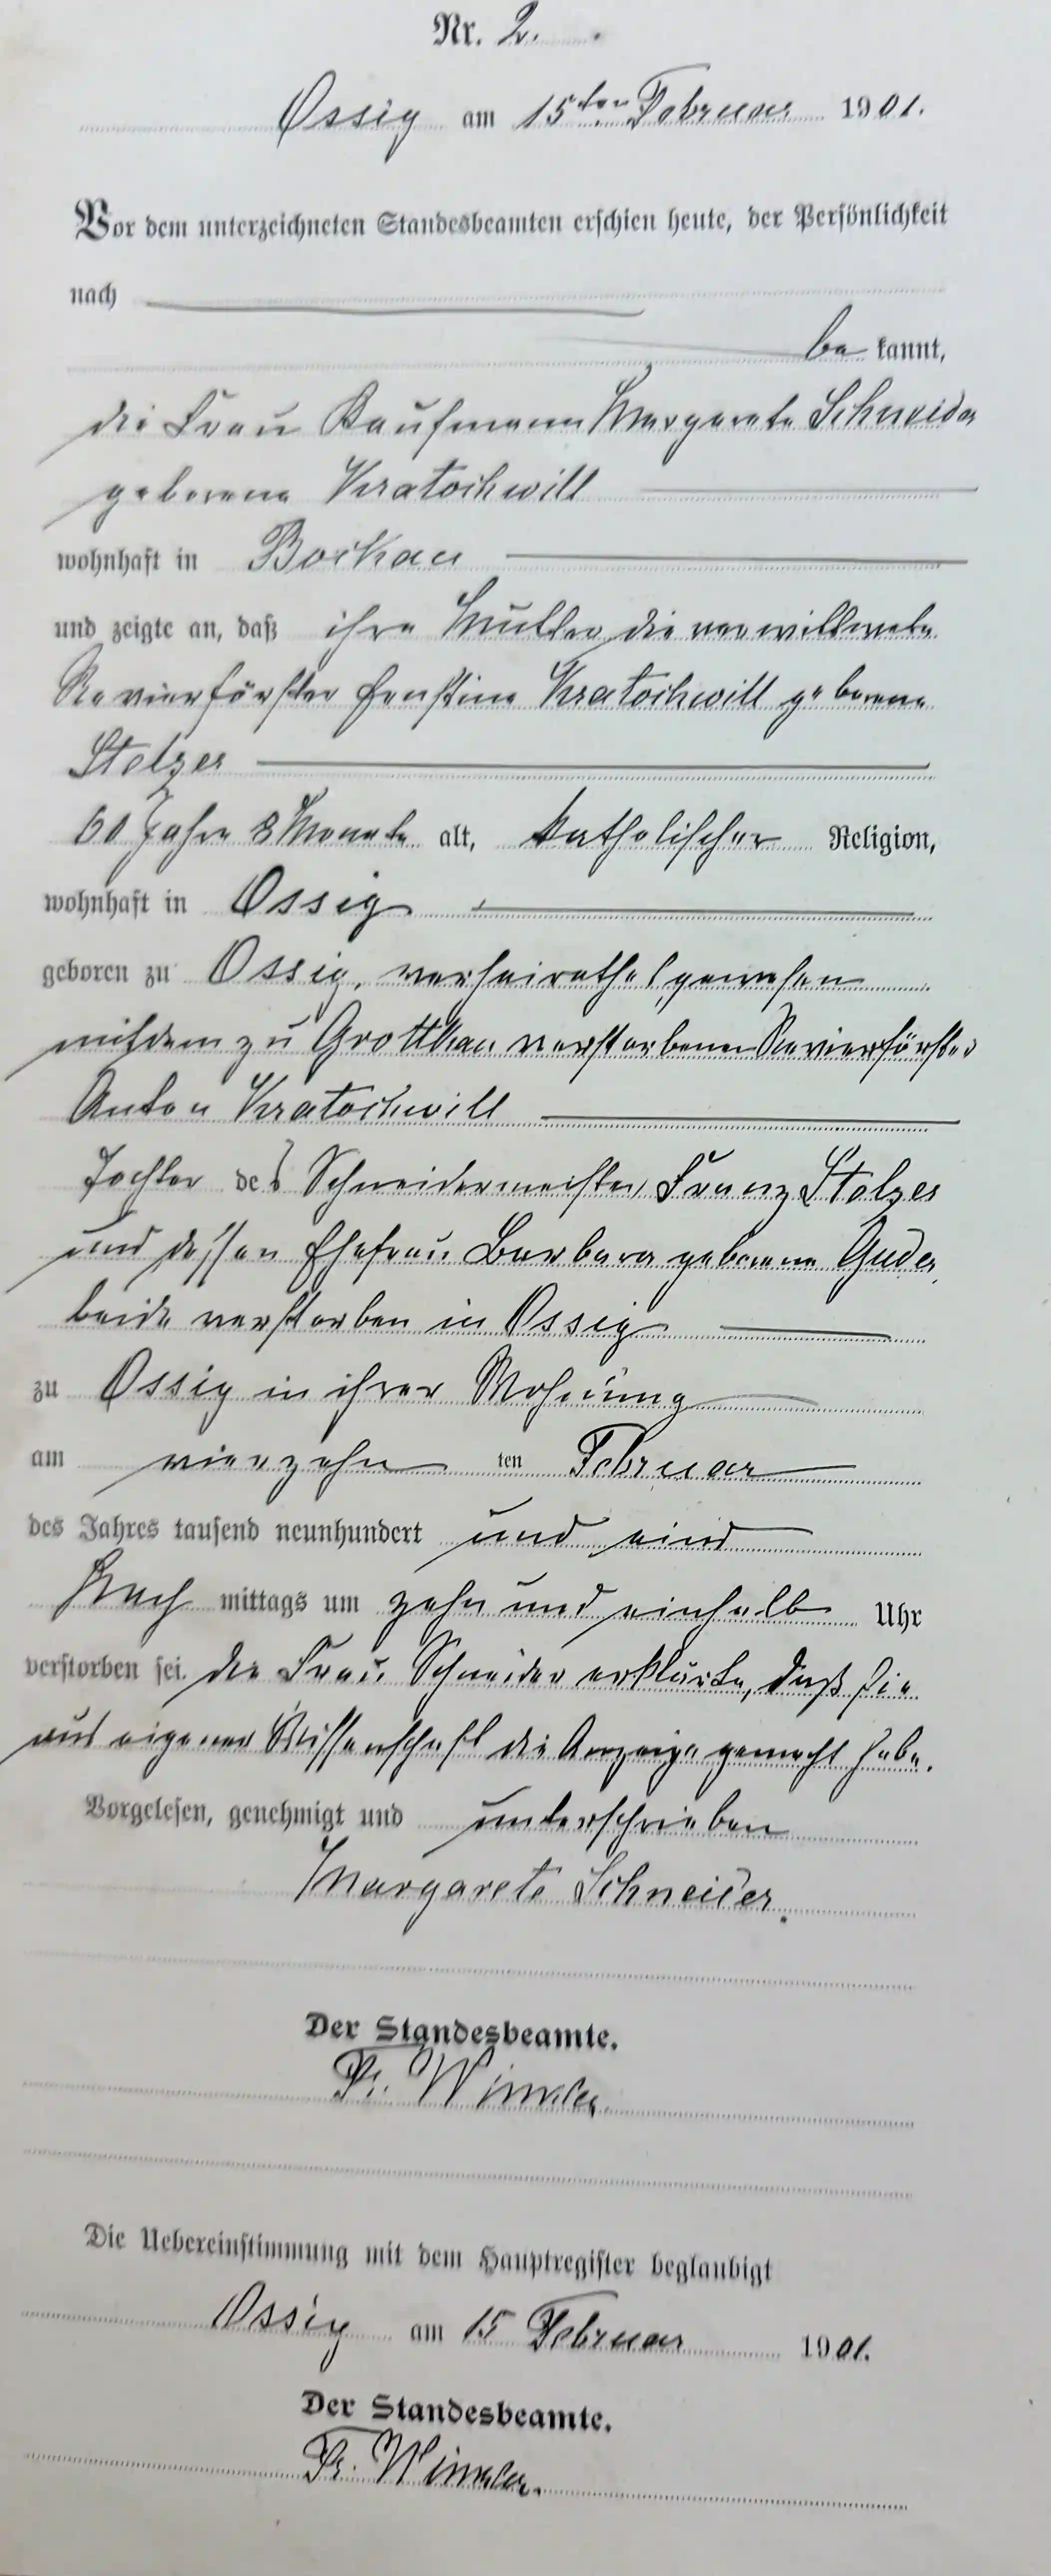 Nr. 2.
Ossig am 15ten Februar 1901.
Vor dem unterzeichneten Standesbeamten erschien heute, der Persönlichkeit
nach
be kannt,
die Frau Kaufmann Margarete Schneider
geborene Kratochwill
wohnhaft in Bockau
und zeigte an, daß ihre Mutter die verwittwete
Revierförster Ernstine Kratochwill geborene
Stelzer
60 Jahre 8 Monate alt, katholischer Religion,
wohnhaft in Ossig
geboren zu Ossig, verheirathet gewesen
mit dem zu Grottkau verstorbenen Revierförster
Anton Kratochwill
Tochter des Schneidermeister Franz Stelzer
und dessen Ehefrau Barbara geborene Guder
beide verstorben in Ossig
zu Ossig in ihrer Wohnung
am vierzehn ten Februar
des Jahres tausend neunhundert und eins
Nach mittags um zehn und einhalb Uhr
verstorben sei. Die Frau Schneider erklärte, daß sie
aus eigener Wissenschaft die Anzeige gemacht habe.
Vorgelesen, genehmigt und unterschrieben
Margarete Schneider.
Der Standesbeamte.
Fr. Winkler
Die Uebereinstimmung mit dem Hauptregister beglaubigt
Ossig am 15 Februar 1901.
Der Standesbeamte.
Fr. Winkler.